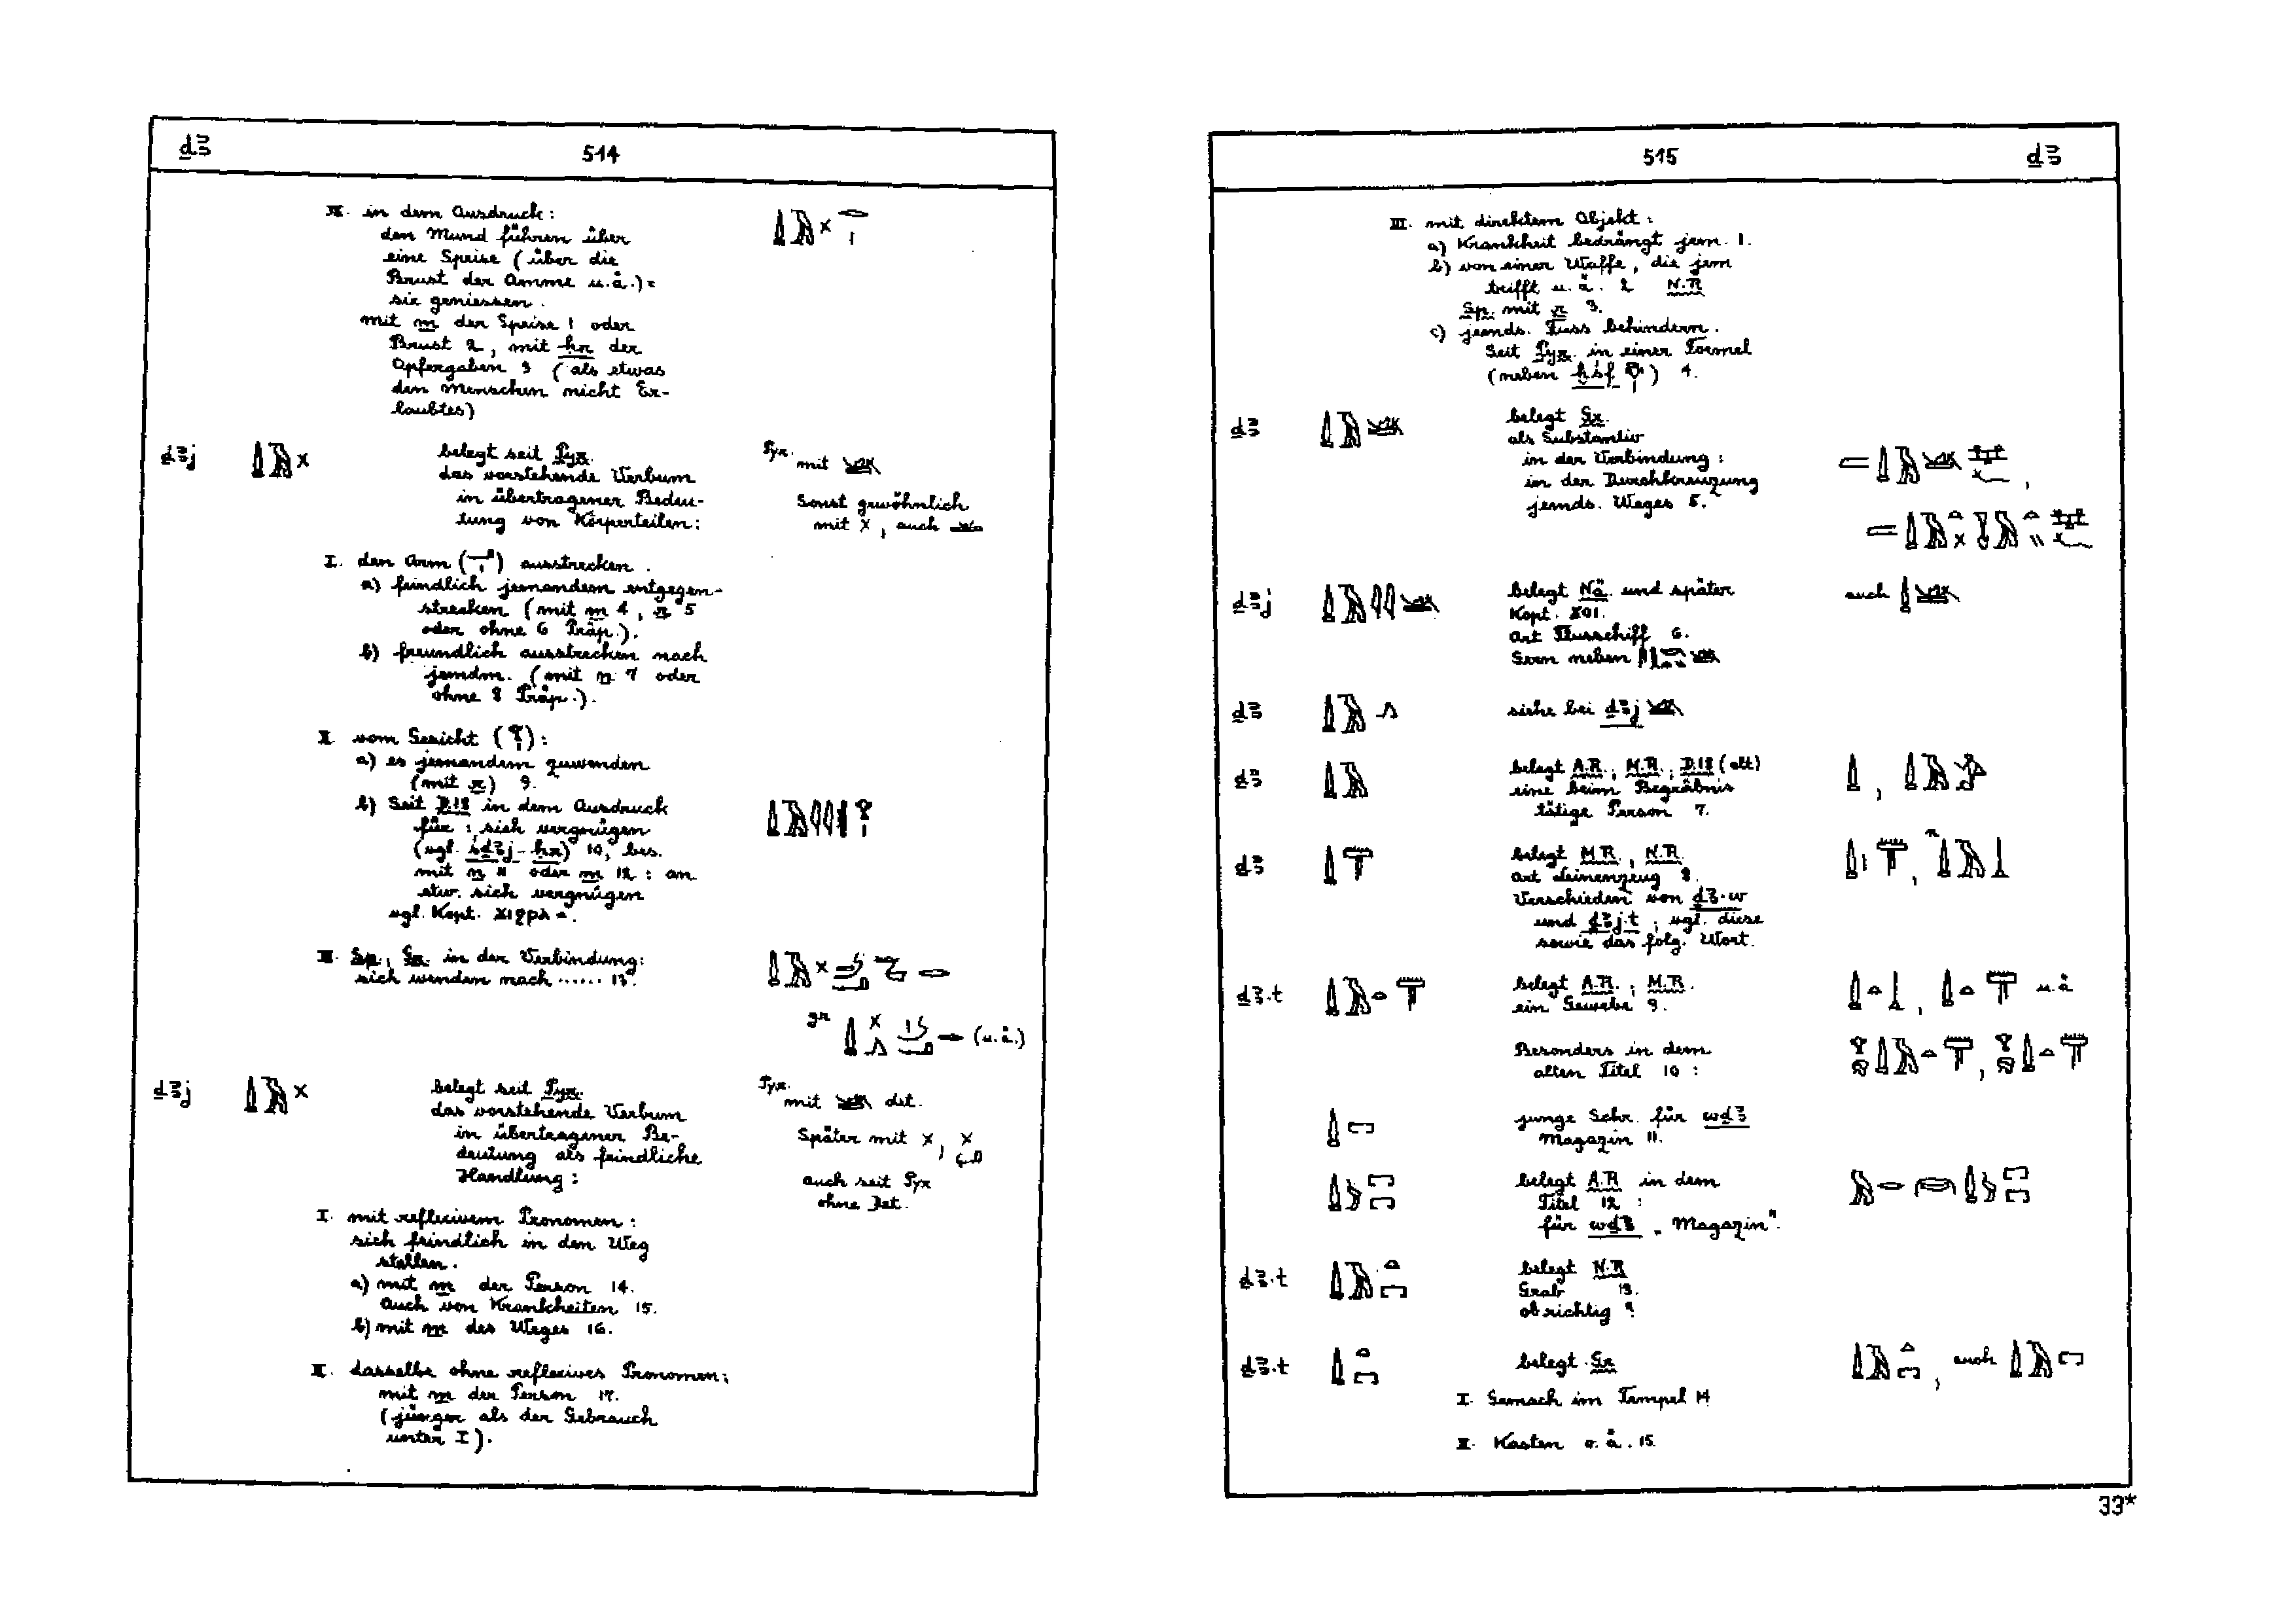 ḏꜣ 514
IX. in dem Ausdruck:
den Mund führen über
eine Speise (über die
Brust der Amme u.ä.) =
sie geniessen.
mit m der Speise 1 oder
Brust 2, mit ḥr der
Opfergaben 3 (als etwas
den Menschen nicht Er-
laubtes)
ḏꜣj belegt seit Pyr. Pyr. mit
das vorstehende Verbum
in übertragener Bedeu- Sonst gewöhnlich
tung von Körperteilen: mit ×, auch
I. den Arm ( ) ausstrecken.
a) feindlich jemandem entgegen-
strecken (mit m 4, r 5
oder ohne 6 Präp.).
b) freundlich ausstrecken nach
jemdm. (mit n 7 oder
ohne 8 Präp.).
II. vom Gesicht ( ):
a) es jemandem zuwenden
(mit r) 9.
b) Seit D.18 in dem Ausdruck
für: sich vergnügen
(vgl. sḏꜣj-ḥr) 10, bes.
mit n 11 oder m 12: an
etw. sich vergnügen
vgl. Kopt.
III. Sp., Gr. in der Verbindung:
sich wenden nach ...... 13.
gr (u.ä.)
ḏꜣj belegt seit Pyr. Pyr. mit det.
das vorstehende Verbum
in übertragener Be- Später mit ×, ×
deutung als feindliche
Handlung: auch seit Pyr
ohne Det.
I. mit reflexivem Pronomen:
sich feindlich in den Weg
stellen.
a) mit m der Person 14.
Auch von Krankheiten 15.
b) mit m des Weges 16.
II. dasselbe ohne reflexives Pronomen:
mit m der Person 17.
(jünger als der Gebrauch
unter I).
515 ḏꜣ
III. mit direktem Objekt:
a) Krankheit bedrängt jem. 1.
b) von einer Waffe, die jem
trifft u.ä. 2 N.R
Sp. mit r 3.
c) jemds. Fuss behindern.
Seit Pyr. in einer Formel
(neben ḫsf ) 4.
ḏꜣ belegt Gr.
als Substantiv
in der Verbindung:
in der Durchkreuzung
jemds. Weges 5.
ḏꜣj belegt Nä. und später auch
Kopt. ϫⲟⲓ.
Art Flussschiff 6.
Gern neben
ḏꜣ siehe bei ḏꜣj
ḏꜣ belegt A.R., M.R., D.18 (alt)
eine beim Begräbnis
tätige Person 7.
ḏꜣ belegt M.R., N.R.
Art Leinenzeug 8.
Verschieden von ḏꜣ.w
und ḏꜣj.t; vgl. diese
sowie das folg. Wort.
ḏꜣ.t belegt A.R., M.R. u.ä
ein Gewebe 9.
Besonders in dem
alten Titel 10:
junge Schr. für wḏꜣ
Magazin 11.
belegt A.R in dem
Titel 12:
für wḏꜣ „Magazin".
ḏꜣ.t belegt N.R
Grab 13.
ob richtig?
ḏꜣ.t belegt Gr , auch
I. Gemach im Tempel 14
II. Kasten o.ä. 15.
33*